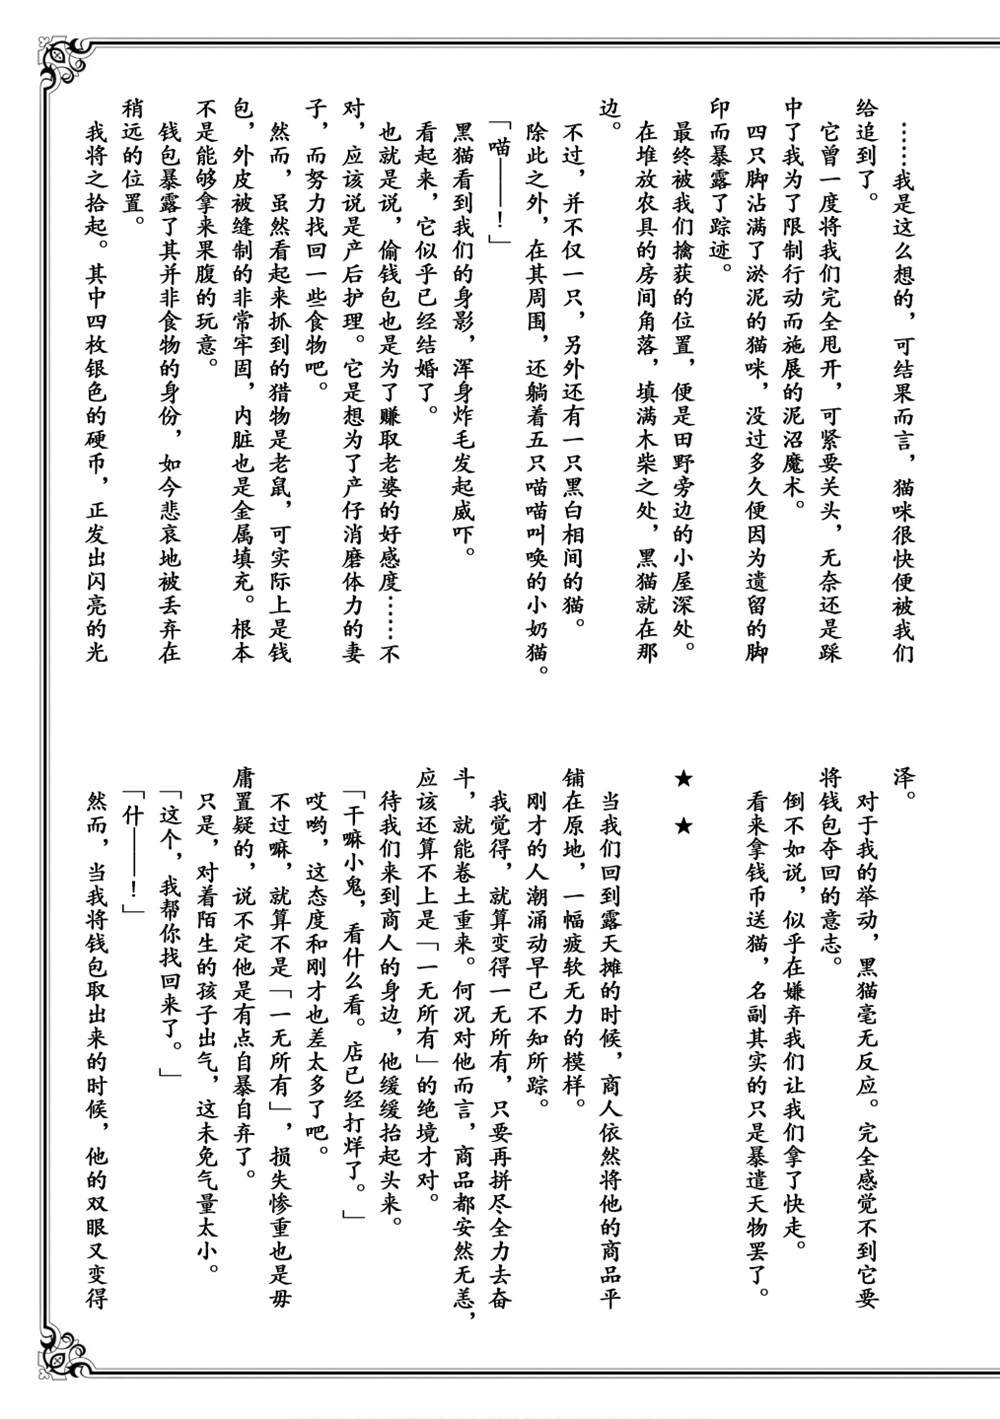 ……我是这么想的，可结果而言，猫咪很快便被我们
给追到了。
它曾一度将我们完全甩开，可紧要关头，无奈还是踩
中了我为了限制行动而施展的泥沼魔术。
四只脚沾满了淤泥的猫咪，没过多久便因为遗留的脚
印而暴露了踪迹。
最终被我们擒获的位置，便是田野旁边的小屋深处。
在堆放农具的房间角落，填满木柴之处，黑猫就在那
边。
不过，并不仅一只，另外还有一只黑白相间的猫。
除此之外，在其周围，还躺着五只喵喵叫唤的小奶猫。
「喵——！」
黑猫看到我们的身影，浑身炸毛发起威吓。
看起来，它似乎已经结婚了。
也就是说，偷钱包也是为了赚取老婆的好感度……不
对，应该说是产后护理。它是想为了产仔消磨体力的妻
子，而努力找回一些食物吧。
然而，虽然看起来抓到的猎物是老鼠，可实际上是钱
包，外皮被缝制的非常牢固，内脏也是金属填充。根本
不是能够拿来果腹的玩意。
钱包暴露了其并非食物的身份，如今悲哀地被丢弃在
稍远的位置。
我将之拾起。其中四枚银色的硬币，正发出闪亮的光
泽。
对于我的举动，黑猫毫无反应。完全感觉不到它要
将钱包夺回的意志。
倒不如说，似乎在嫌弃我们让我们拿了快走。
看来拿钱币送猫，名副其实的只是暴遣天物罢了。
★ ★
当我们回到露天摊的时候，商人依然将他的商品平
铺在原地，一幅疲软无力的模样。
刚才的人潮涌动早已不知所踪。
我觉得，就算变得一无所有，只要再拼尽全力去奋
斗，就能卷土重来。何况对他而言，商品都安然无恙，
应该还算不上是「一无所有」的绝境才对。
待我们来到商人的身边，他缓缓抬起头来。
「干嘛小鬼，看什么看。店已经打烊了。」
哎哟，这态度和刚才也差太多了吧。
不过嘛，就算不是「一无所有」，损失惨重也是毋
庸置疑的，说不定他是有点自暴自弃了。
只是，对着陌生的孩子出气，这未免气量太小。
「这个，我帮你找回来了。」
「什——！」
然而，当我将钱包取出来的时候，他的双眼又变得